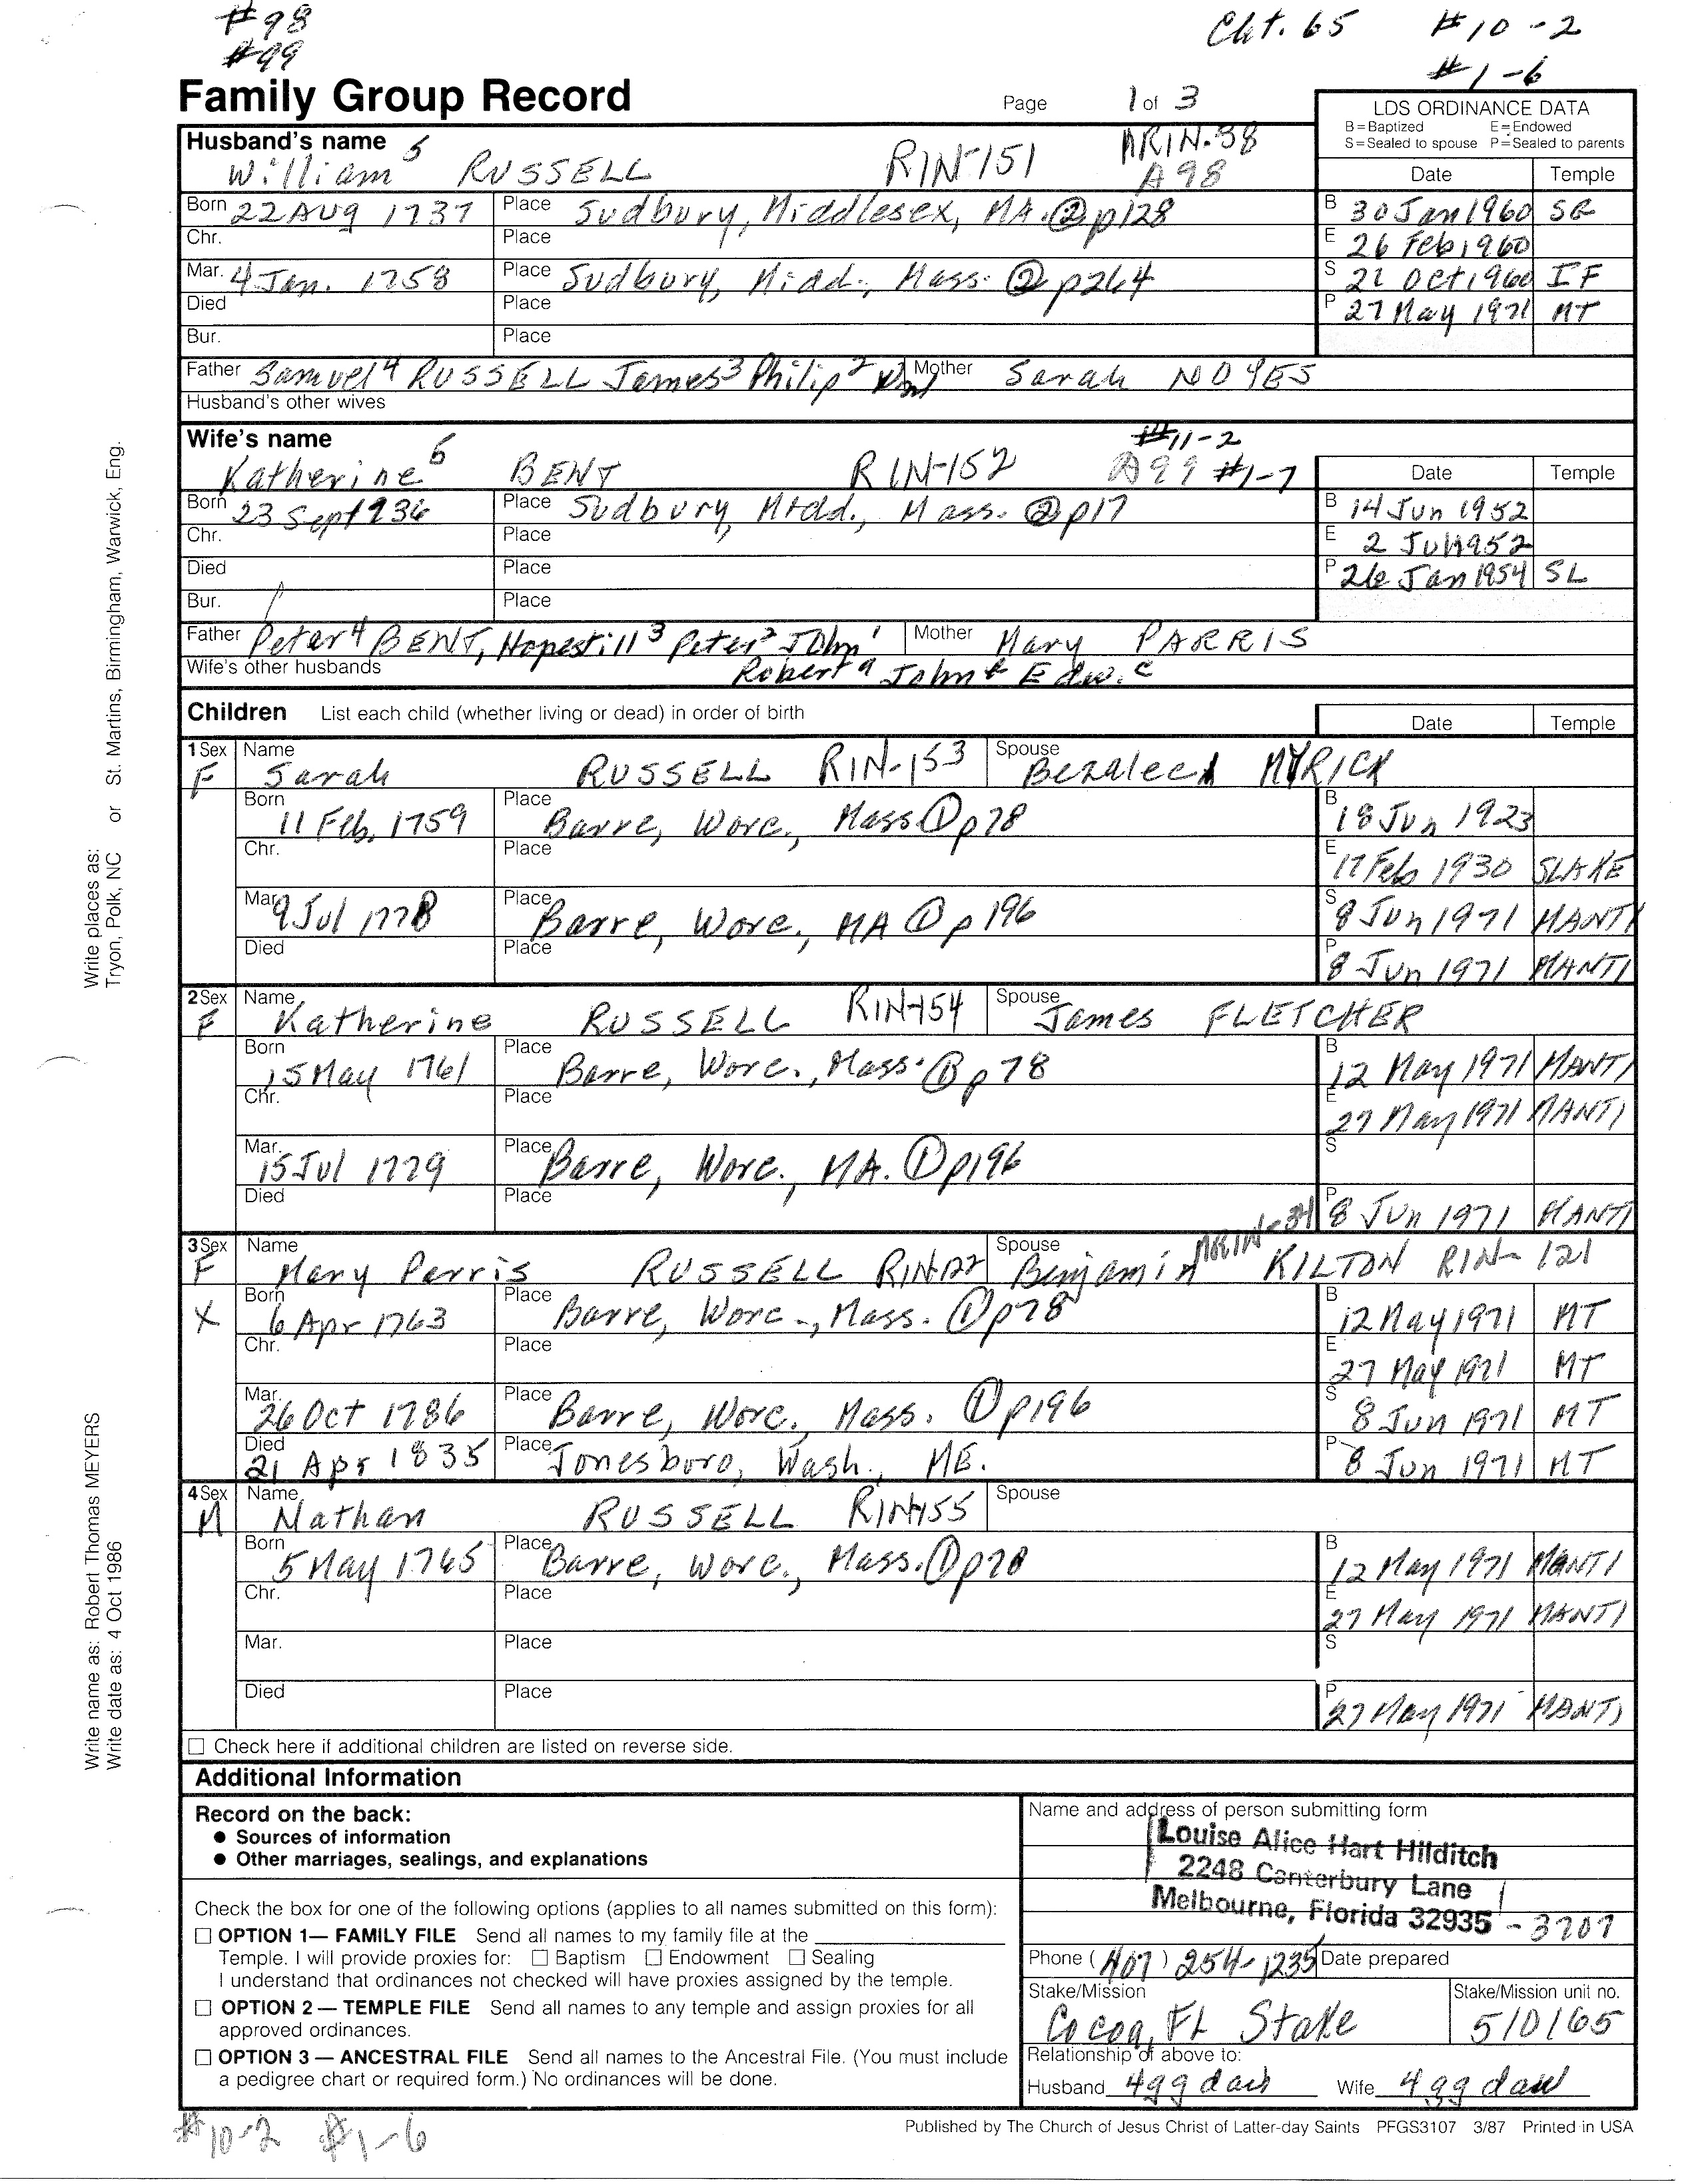 #98
#99
Cht. 65 #10-2
#1-6
Family Group Record
Page 1 of 3
LDS ORDINANCE DATA
B=Baptized E=Endowed
S=Sealed to spouse P=Sealed to parents
Date Temple
Husband's name
William 5 RUSSELL RIN-151 MRIN-38
A98
Born 22 AUG 1737 Place Sudbury, Middlesex, MA. ② p128
B 30 Jan 1960 SG
Chr. Place
E 26 Feb 1960
Mar. 4 Jan. 1758 Place Sudbury, Midd., Mass. ② p264
S 21 Oct 1960 IF
Died Place
P 27 May 1971 MT
Bur. Place
Father Samuel 4 RUSSELL James 3 Philip 2 Wm 1 Mother Sarah NOYES
Husband's other wives
Wife's name
#11-2
Katherine 5 BENT RIN-152 A99 #1-7
Date Temple
Born 23 Sept 1736 Place Sudbury, Midd., Mass. ② p17
B 14 Jun 1952
Chr. Place
E 2 Jul 1952
Died Place
P 26 Jan 1954 SL
Bur. Place
Father Peter 4 BENT, Hopestill 3 Peter 2 John 1 Mother Mary PARRIS
Wife's other husbands Robert a John b Edw. c
Children List each child (whether living or dead) in order of birth
Date Temple
1 Sex Name Spouse
F Sarah RUSSELL RIN-153 Bezaleel MYRICK
Born 11 Feb. 1759 Place Barre, Worc., Mass ① p78
B 18 Jun 1923
Chr. Place
E 17 Feb 1930 SLAKE
Mar. 9 Jul 1778 Place Barre, Worc., MA ① p196
S 8 Jun 1971 MANTI
Died Place
P 8 Jun 1971 MANTI
2 Sex Name Spouse
F Katherine RUSSELL RIN-154 James FLETCHER
Born 15 May 1761 Place Barre, Worc., Mass. ① p78
B 12 May 1971 MANTI
Chr. Place
E 27 May 1971 MANTI
Mar. 15 Jul 1779 Place Barre, Worc., MA. ① p196
S
Died Place
P 8 Jun 1971 MANTI
3 Sex Name Spouse MRIN-31
F Mary Perris RUSSELL RIN-122 Benjamin KILTON RIN-121
X Born 6 Apr 1763 Place Barre, Worc., Mass. ① p78
B 12 May 1971 MT
Chr. Place
E 27 May 1971 MT
Mar. 26 Oct 1786 Place Barre, Worc. Mass. ① p196
S 8 Jun 1971 MT
Died 21 Apr 1835 Place Jonesboro, Wash., ME.
P 8 Jun 1971 MT
4 Sex Name Spouse
M Nathan RUSSELL RIN-155
Born 5 May 1765 Place Barre, Worc., Mass. ① p78
B 12 May 1971 MANTI
Chr. Place
E 27 May 1971 MANTI
Mar. Place
S
Died Place
P 27 May 1971 MANTI
Check here if additional children are listed on reverse side.
Additional Information
Record on the back:
● Sources of information
● Other marriages, sealings, and explanations
Check the box for one of the following options (applies to all names submitted on this form):
OPTION 1— FAMILY FILE Send all names to my family file at the
Temple. I will provide proxies for: Baptism Endowment Sealing
I understand that ordinances not checked will have proxies assigned by the temple.
OPTION 2 — TEMPLE FILE Send all names to any temple and assign proxies for all
approved ordinances.
OPTION 3 — ANCESTRAL FILE Send all names to the Ancestral File. (You must include
a pedigree chart or required form.) No ordinances will be done.
Name and address of person submitting form
Louise Alice Hart Hilditch
2248 Canterbury Lane
Melbourne, Florida 32935 - 3707
Phone (407) 254-1235 Date prepared
Stake/Mission Stake/Mission unit no.
Cocoa, FL Stake 510165
Relationship of above to:
Husband 4gg dau Wife 4gg dau
#10-2 #1-6
Published by The Church of Jesus Christ of Latter-day Saints PFGS3107 3/87 Printed in USA
Write places as: St. Martins, Birmingham, Warwick, Eng.
Tryon, Polk, NC or
Write name as: Robert Thomas MEYERS
Write date as: 4 Oct 1986